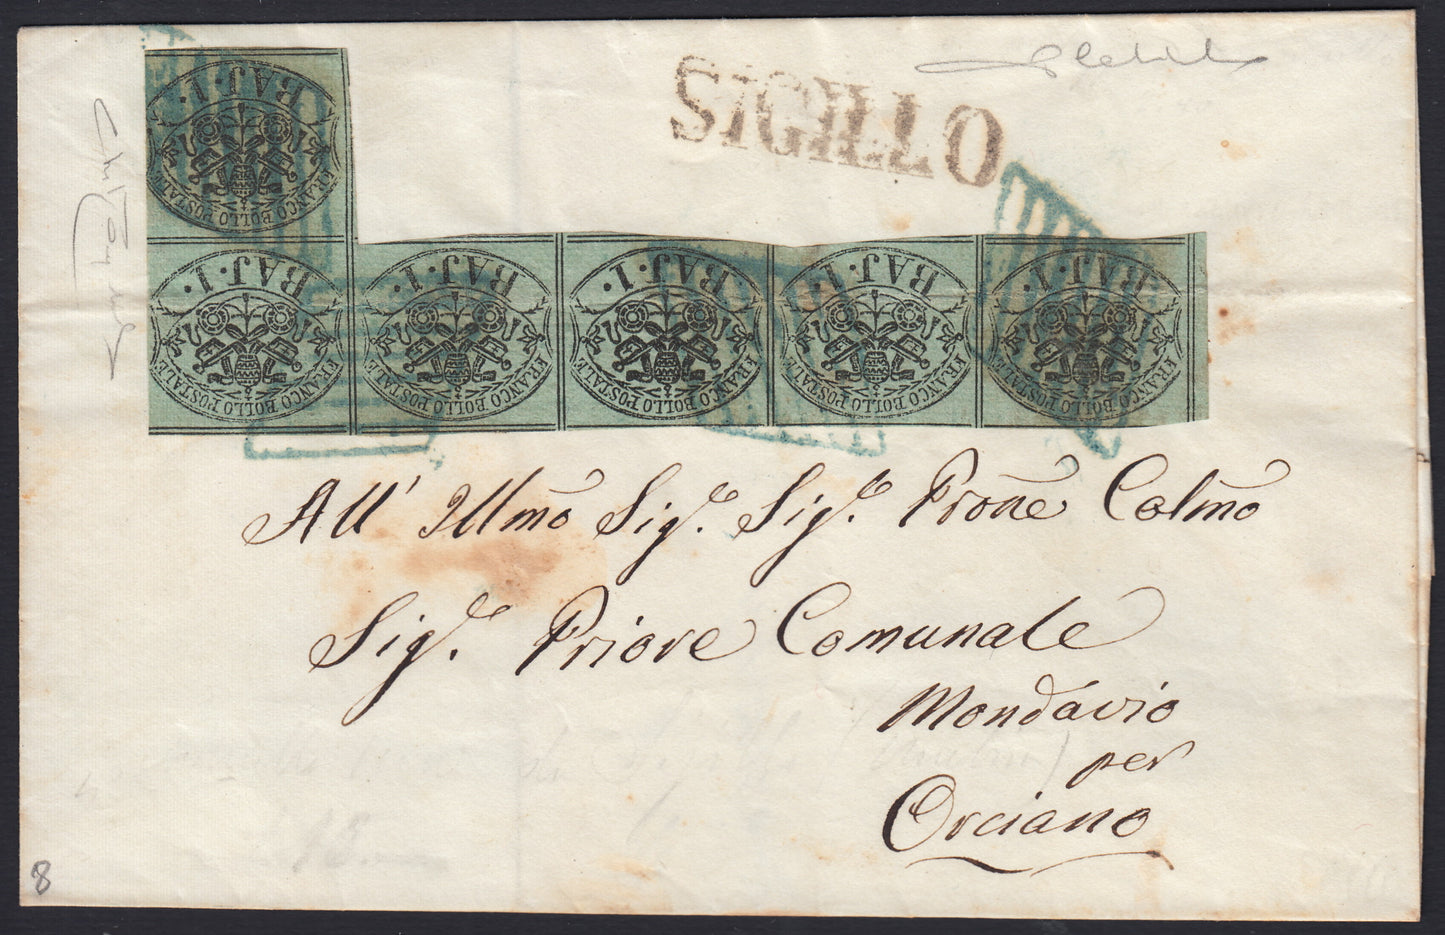 SIGILLO
BAJ. 1.
FRANCO BOLLO POSTALE
BAJ. 1.
FRANCO BOLLO POSTALE
BAJ. 1.
FRANCO BOLLO POSTALE
BAJ. 1.
FRANCO BOLLO POSTALE
BAJ. 1.
FRANCO BOLLO POSTALE
BAJ. 1.
FRANCO BOLLO POSTALE
All' Illmo Sigr. Sigr. Prone Colmo
Sigr. Priore Comunale
Mondavio
per
Orciano
8